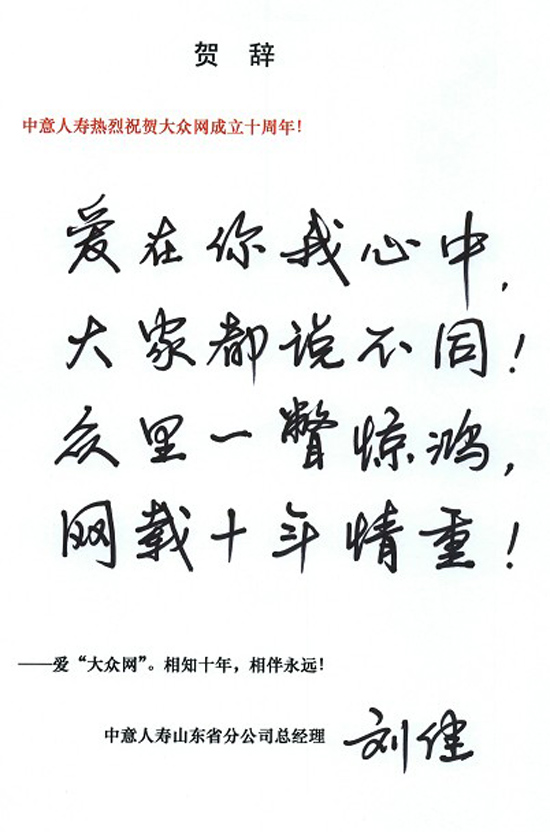 贺 辞
中意人寿热烈祝贺大众网成立十周年！
爱在你我心中，
大家都说不同！
众里一瞥惊鸿，
网载十年情重！
——爱“大众网”。相知十年，相伴永远！
中意人寿山东省分公司总经理 刘佳